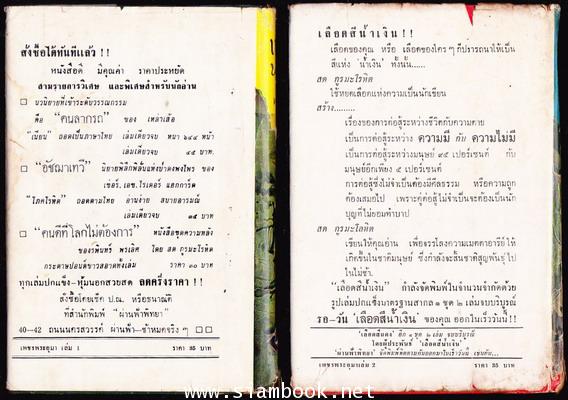 สั่งซื้อได้ทันทีแล้ว !!
หนังสือดี มีคุณค่า ราคาประหยัด
สามรายการวิเศษ และพิเศษสำหรับนักอ่าน
นวนิยายที่เข้าระดับวรรณกรรม
คือ "คนลากรถ" ของ เหล่าเส้อ
"เนียน" ถอดเป็นภาษาไทย เล่มเดียวจบ หนา ๖๔๔ หน้า
เล่มเดียวจบ ๔๕ บาท.
"อัซฌาเทวี" นิยายพิลึกพิลั่นแห่งป่าดงพงไพร ของ
เซอร์.เอช.ไรเดอร์ แฮกการ์ด
"โภคไวทิต" ถอดตามไทย อ่านง่าย สบายอารมณ์
เล่มเดียวจบ ๑๕ บาท
"คนดีที่โลกไม่ต้องการ" หนังสือชุดความหลัง
ของรพินทร์ พรเลิศ โดย สด กูรมะโรหิต
กระดาษปอนด์ขาวสอาดทั้งเล่ม ราคา ๓๐ บาท
ทุกเล่มปกแข็ง-หุ้มนอกสวยสด ลดครึ่งราคา !!
สั่งซื้อโดยเช็ค ป.ณ. หรือธนาณัติ
ที่สำนักพิมพ์ "ผ่านฟ้าพิทยา"
40-42 ถนนนครสวรรค์ ผ่านฟ้า-ช้าหมดจริง ๆ
เพชรพระอุมา เล่ม 1 ราคา 35 บาท
เลือดสีน้ำเงิน !!
เลือดของคุณ หรือ เลือดของใคร ๆ ก็ปรารถนาให้เป็น
สีแห่ง 'น้ำเงิน' ทั้งนั้น......
สด กูรมะโรหิต
ใช้หยดเลือดแห่งความเป็นนักเขียน
สร้าง.........
เรื่องของการต่อสู้ระหว่างชีวิตกับความตาย
เป็นการต่อสู้ระหว่าง ความมี กับ ความไม่มี
เป็นการต่อสู้ระหว่างมนุษย์ ๙๕ เปอร์เซนต์ กับ
มนุษย์อีกเพียง ๕ เปอร์เซนต์
การต่อสู้ซึ่งไม่จำเป็นต้องมีศีลธรรม หรือความถูก
ต้องเสมอไป เพราะคู่ต่อสู้ไม่จำเป็นจะต้องเป็นนัก
บุญที่ไม่ยอมทำบาป
สด กูรมะโรหิต
เขียนให้คุณอ่าน เพื่อจรรโลงความเมตตาอารีย์ให้
เกิดขึ้นในชาติมนุษย์ ซึ่งกำลังจะสิ้นชาติสูญพันธุ์ไป
ในไม่ช้า.
"เลือดสีน้ำเงิน" กำลังจัดพิมพ์ในจำนวนจำกัดด้วย
รูปเล่มปกแข็งมาตรฐานสากล ๑ ชุด ๒ เล่มจบบริบูรณ์
รอ-วัน 'เลือดสีน้ำเงิน' ของคุณ ออกในเร็ววันนี้ !!
'เลือดสีแดง' อีก ๑ ชุด ๒ เล่ม จบบริบูรณ์
โดยผู้ประพันธ์ 'เลือดสีน้ำเงิน'
'ผ่านฟ้าพิทยา' จัดพิมพ์ติดตามกันออกมาในเร็ววันนี้ เช่นกัน...
เพชรพระอุมาเล่ม 2 ราคา 35 บาท
www.siambook.net